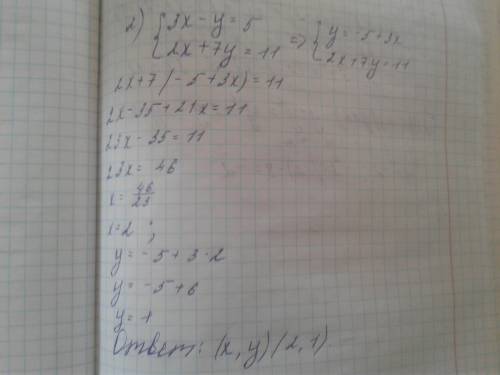 2) { 3x - y = 5 => { y = -5 + 3x
{ 2x + 7y = 11 { 2x + 7y = 11
2x + 7(-5 + 3x) = 11
2x - 35 + 21x = 11
23x - 35 = 11
23x = 46
x = 46/23
x = 2 ;
y = -5 + 3·2
y = -5 + 6
y = 1
Ответ: (x, y) (2, 1)